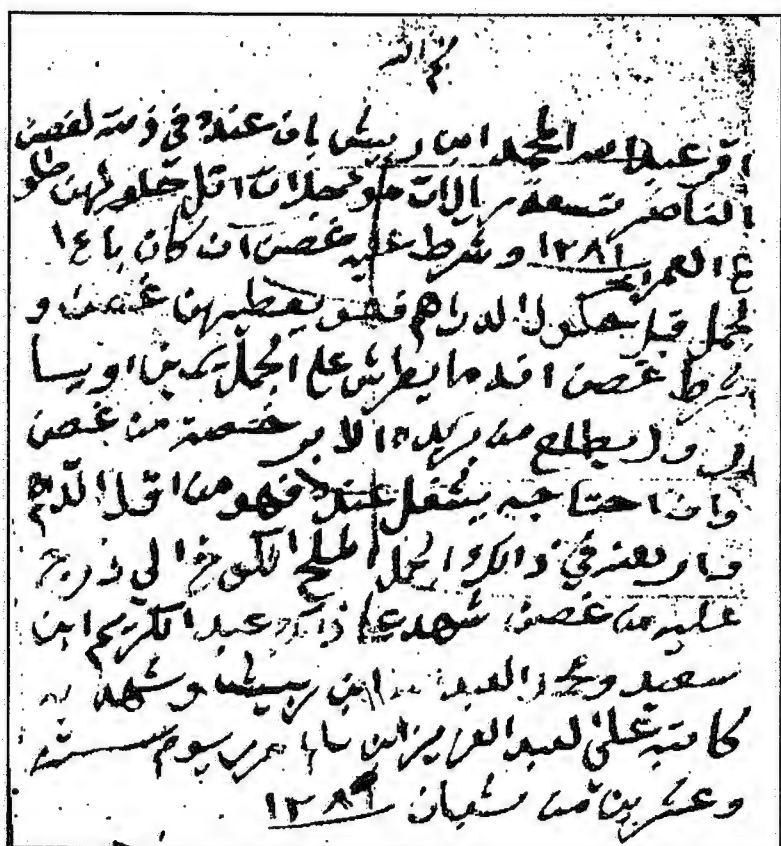 بسم الله
اقر عبد الله المحمد ابن ربيش بان عنده في ذمته لغصن
الناصر تسعة ريالات مؤجلات اقل حلولهن طلو
ع العمر 1281 وشرط عليه غصن ان كان باع ا
لجمل قبل حلول الدراهم فهو يعطيهن غصن و
شرط غصن انه ما يطرش على الجمل يمين او يسا
ر ولا يطلع من بريده الا برخصة من غصن
وان احتاجه يشغل عنده فهو من اقل الدراهم
وارهنه في ذالك الجمل الملح الذي درج
عليه من غصن شهد على ذالك عبد الكريم ابن
سعيد ومحمد العبد الله ابن ربيش وشهد به
كاتبه علي العبد العزيز ابن سالم حرر يوم ستة
وعشرين من شعبان ١٢٨١